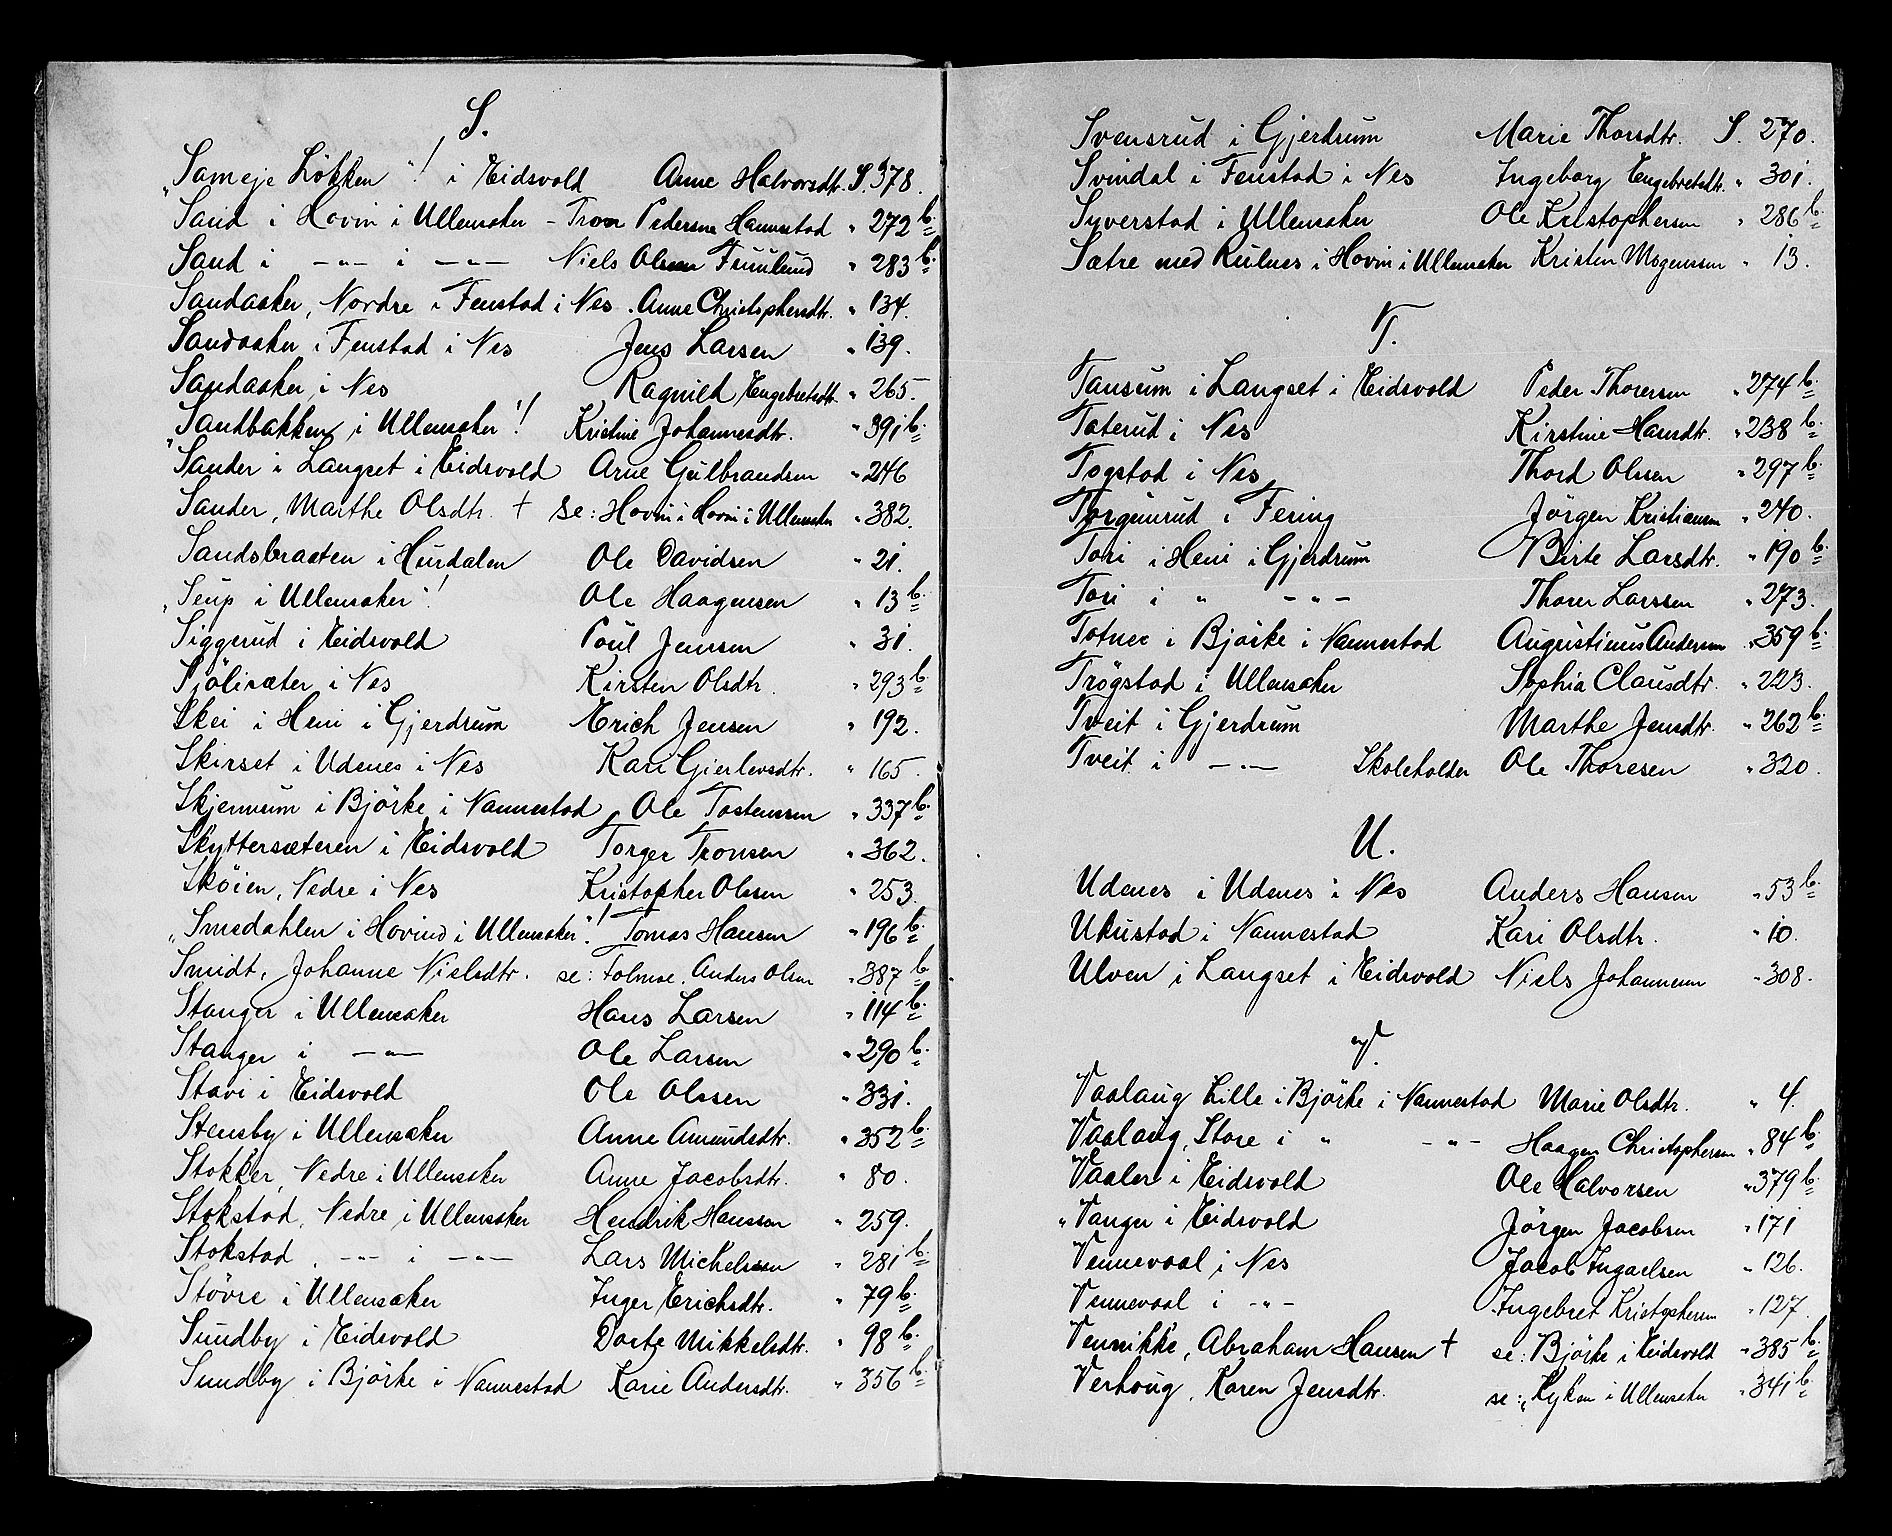 S.
„Sameje Løkken“! i Eidsvold Anne Halvorsdtr. S. 378.
Sand i Hovin i Ullensaker - Tron Pedersen Hannestad " 272 b.
Sand i -"- i -"- Niels Olssen Fuulund " 283 b.
Sandaaker, Nordre i Fenstad i Nes. Anne Christophersdtr. " 134.
Sandaaker i Fenstad i Nes Jens Larsen " 139.
Sandaaker i Nes Ragnild Engebretsdtr. " 265.
„Sandbakken i Ullensaker“! Kristine Johannesdtr. " 391 b.
Sander i Langset i Eidsvold Arne Gulbrandsen " 246
Sander, Marthe Olsdtr. † se: Hovin i Hovin i Ullensaker " 382.
Sandsbraaten i Hurdalen Ole Davidsen " 21.
„Seup i Ullensaker“! Ole Haagensen " 13 b.
Siggerud i Eidsvold Poul Jenssen " 31.
Sjøliseter i Nes Kirsten Olsdtr. " 293 b.
Skei i Heni i Gjerdrum Erich Jensen " 192.
Skirset i Udenes i Nes Kari Gjerlevsdtr. " 165.
Skjennum i Bjørke i Nannestad Ole Tostenssen " 337 b.
Skyttersæteren i Eidsvold Torger Tronsen " 362.
Skøien, Nedre i Nes Kristopher Olssen " 253.
„Smedahlen i Hovind i Ullensaker“! Tomas Hansen " 196 b.
Smidt, Johanne Nielsdtr. se: Folmoe, Anders Olsen " 387 b.
Stanger i Ullensaker Hans Larsen " 114 b.
Stanger i -"- Ole Larsen " 290 b.
Stavi i Eidsvold Ole Olssen " 331.
Stensby i Ullensaker Anne Amundsdtr. " 352 b.
Stokker, Nedre i Ullensaker Anne Jacobsdtr. " 80.
Stokstad, Nedre i Ullensaker Hendrik Hanssen " 259.
Stokstad, -"- i -"- Lars Michelssen " 281 b.
Støvre i Ullensaker Inger Erichsdtr. " 79 b.
Sundby i Eidsvold Dorte Mikkelsdtr. " 98 b.
Sundby i Bjørke i Nannestad Karie Andersdtr. " 356 b.
Svensrud i Gjerdrum Marie Thorsdtr. S. 270.
Svindal i Fenstad i Nes Ingeborg Engebretsdtr. " 301.
Syverstad i Ullensaker Ole Kristophersen " 286 b.
Sætre med Rulnes i Hovin i Ullensaker Kristen Mogenssen " 13.
T.
Tansum i Langset i Eidsvold Peder Thorersen " 274 b.
Taterud i Nes Kirstine Hansdtr. " 238 b.
Togstad i Nes Thord Olssen " 297 b.
Torgunrud i Fering Jørgen Kristiansen " 240.
Tori i Heni i Gjerdrum Birte Larsdtr. " 190 b.
Tori i " -"- Thorer Larssen " 273.
Totner i Bjørke i Nannestad Augustinus Andersen " 359 b.
Trøgstad i Ullensaker Sophia Clausdtr. " 223.
Tveit i Gjerdrum Marthe Jensdtr. " 262 b.
Tveit i -"- Skoleholder Ole Thoresen " 320.
U.
Udenes i Udenes i Nes Anders Hansen " 53 b.
Ukustad i Nannestad Kari Olsdtr. " 10.
Ulven i Langset i Eidsvold Niels Johannesen " 308.
V.
Vaalaug Lille i Bjørke i Nannestad Marie Olsdtr. " 4.
Vaalaug, Store i " -"- Haagen Christophersen " 84 b.
Vaaler i Eidsvold Ole Halvorsen " 379 b.
„Vanger i Eidsvold Jørgen Jacobsen " 171
Vennevaal i Nes Jacob Ingaelsen " 126.
Vennevaal i -"- Ingebret Kristophersen " 127.
Vennikke, Abraham Hansen † se: Bjørke i Eidsvold " 385 b.
Verhoug, Karen Jensdtr. se: „Kyken i Ullensaker " 341 b.